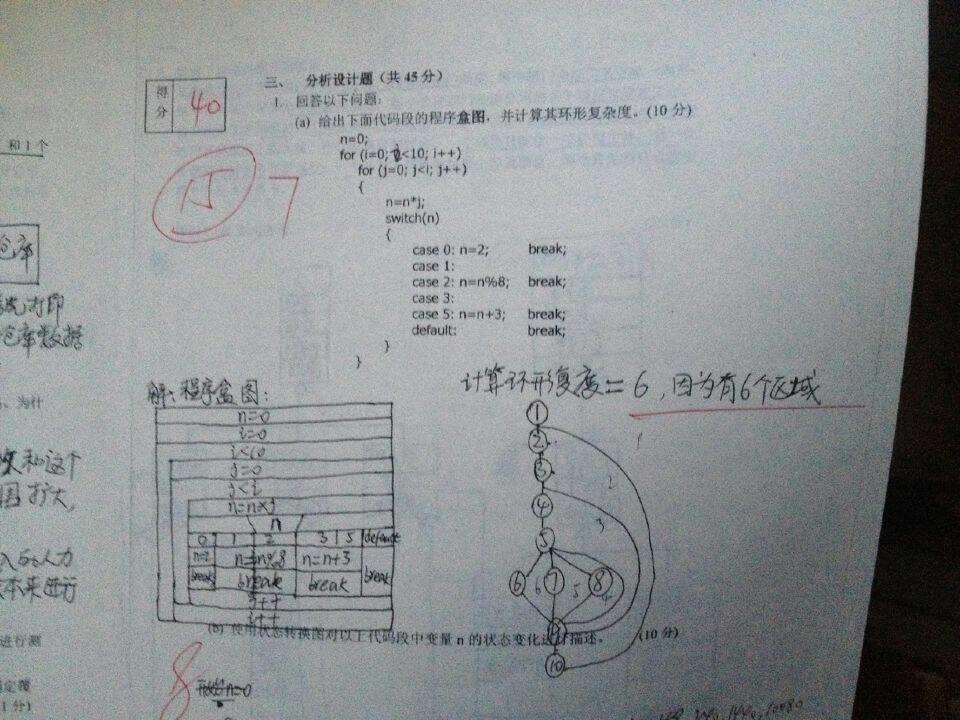 得分
40
三、 分析设计题（共 45 分）
1. 回答以下问题：
(a) 给出下面代码段的程序盒图，并计算其环形复杂度。(10 分)
n=0;
for (i=0; i<10; i++)
for (j=0; j<i; j++)
{
n=n*j;
switch(n)
{
case 0: n=2; break;
case 1:
case 2: n=n%8; break;
case 3:
case 5: n=n+3; break;
default: break;
}
}
15
7
和 1 个
仓库
打印
仓库数据
、为什
和这个
扩大，
人力
本来进行
进行测
定覆
1 分)
解：程序盒图：
n=0
i=0
i<10
j=0
j<i
n=n×j
n
0 1 2 3 5 default
n=2 n=n%8 n=n+3
break break break break
j++
i++
计算环形复度=6，因为有6个区域
1
2
3
4
5
6 7 8
10
1
2
3
6 5 4
(b) 使用状态转换图对以上代码段中变量 n 的状态变化进行描述。 (10 分)
8
n=0